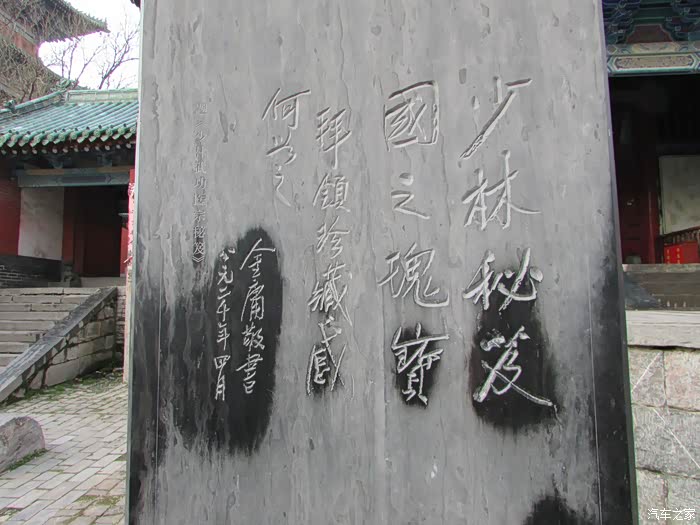 少林秘笈
國之瑰寶
拜領珍藏感
何如之
金庸敬書
公元二千年四月
汽车之家